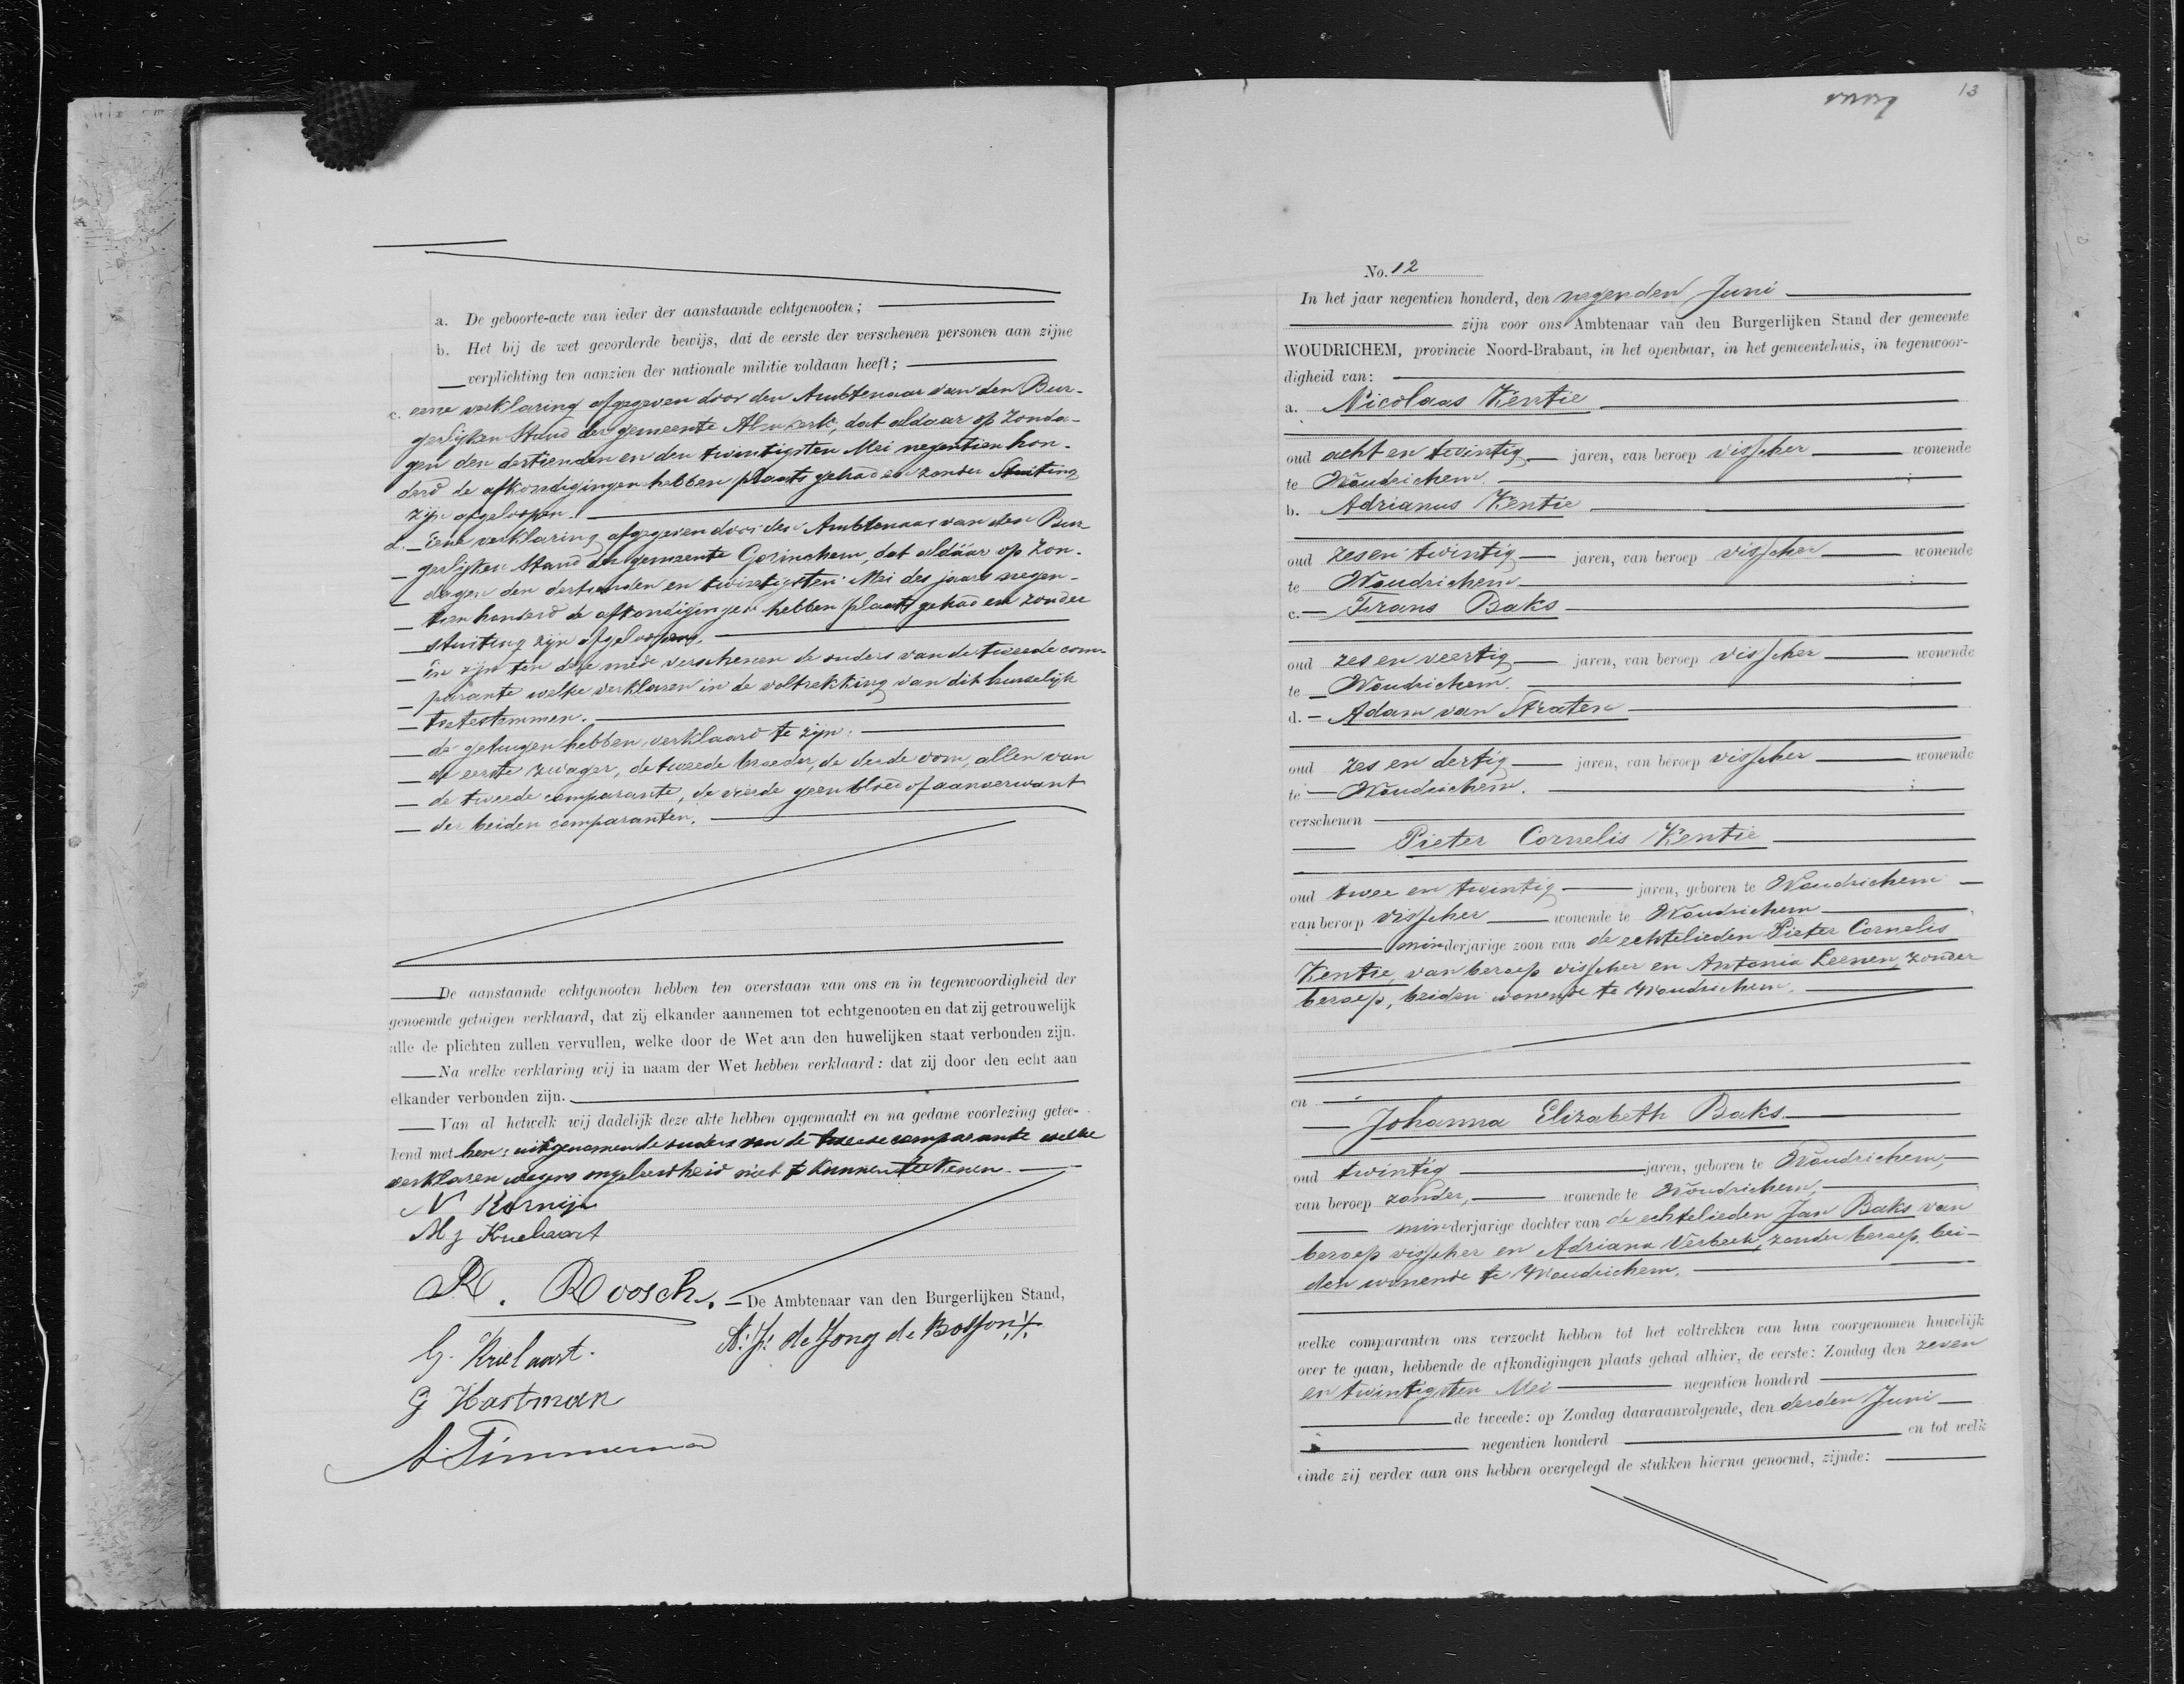 a. De geboorte-acte van ieder der aanstaande echtgenooten;
b. Het bij de wet gevorderde bewijs, dat de eerste der verschenen personen aan zijne
verplichting ten aanzien der nationale militie voldaan heeft;
c. eene verklaring afgegeven door den Ambtenaar van den Bur-
gerlijken Stand der gemeente Almkerk, dat aldaar op Zonda-
gen den dertienden en den twintigsten Mei negentien hon-
derd de afkondigingen hebben plaats gehad en zonder Stuiting
zijn afgeloopen.
d. Eene verklaring afgegeven door den Ambtenaar van den Bur-
gerlijken Stand der gemeente Gorinchem, dat aldaar op Zon-
dagen den dertienden en twintigsten Mei des jaars negen-
tien honderd de afkondigingen hebben plaats gehad en zonder
stuiting zijn afgeloopen.
En zijn ten deze mede verschenen de ouders van de tweede com-
parante welke verklaren in de voltrekking van dit huwelijk
toetestemmen.
de getuigen hebben verklaard te zijn:
de eerste zwager, de tweede broeder, de derde oom, allen van
de tweede comparante, de vierde geen bloed of aanverwant
der beiden comparanten.
De aanstaande echtgenooten hebben ten overstaan van ons en in tegenwoordigheid der
genoemde getuigen verklaard, dat zij elkander aannemen tot echtgenooten en dat zij getrouwelijk
alle de plichten zullen vervullen, welke door de Wet aan den huwelijken staat verbonden zijn.
Na welke verklaring wij in naam der Wet hebben verklaard: dat zij door den echt aan
elkander verbonden zijn.
Van al hetwelk wij dadelijk deze akte hebben opgemaakt en na gedane voorlezing getee-
kend met hen; uitgenomen de ouders van de tweede comparante welke
verklaren wegens ongeleerdheid niet te kunnen teekenen.
N Kornije
M J Krielaart
R. Roosch.
De Ambtenaar van den Burgerlijken Stand,
G. Krielaart.
A. J. de Jong de Bosson
G Hartman
A Timmerma
13
No. 12
In het jaar negentien honderd, den negenden Juni
zijn voor ons Ambtenaar van den Burgerlijken Stand der gemeente
WOUDRICHEM, provincie Noord-Brabant, in het openbaar, in het gemeentehuis, in tegenwoor-
digheid van:
a. Nicolaas Kentie
oud acht en twintig jaren, van beroep visscher wonende
te Woudrichem. ;
b. Adrianus Kentie
oud zes en twintig jaren, van beroep visscher wonende
te Woudrichem ;
c. Frans Baks
oud zes en veertig jaren, van beroep visscher wonende
te Woudrichem. ;
d. Adam van Straten
oud zes en dertig jaren, van beroep visscher wonende
te Woudrichem. ;
verschenen
Pieter Cornelis Kentie
oud twee en twintig jaren, geboren te Woudrichem
van beroep visscher wonende te Woudrichem,
minderjarige zoon van de echtelieden Pieter Cornelis
Kentie, van beroep visscher en Antonia Leenen, zonder
beroep, beiden wonende te Woudrichem.
en
Johanna Elizabeth Baks
oud twintig jaren, geboren te Woudrichem,
van beroep zonder, wonende te Woudrichem,
minderjarige dochter van de echtelieden Jan Baks van
beroep visscher en Adriana Verbeek, zonder beroep, bei-
den wonende te Woudrichem.
welke comparanten ons verzocht hebben tot het voltrekken van hun voorgenomen huwelijk
over te gaan, hebbende de afkondigingen plaats gehad alhier, de eerste: Zondag den zeven
en twintigsten Mei negentien honderd
de tweede: op Zondag daaraanvolgende, den derden Juni
negentien honderd en tot welk
einde zij verder aan ons hebben overgelegd de stukken hierna genoemd, zijnde: